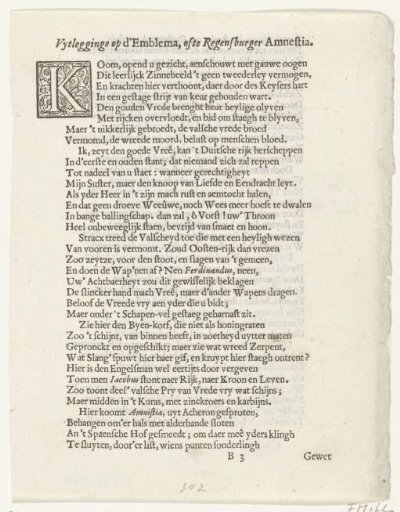 Vytlegginge op d'Emblema, ofte Regensburger Amnestia.
KOom, opend u gezicht, aenschouwt met gauwe oogen
Dit leerlijck Zinnebeeld 't geen tweederley vermogen,
En krachten hier verthoont, daer door des Keysers hart
In een gestage strijt van keur gehouden wart.
Den gouden Vrede brenght heur heylige olyven
Met rijcken overvloedt, en bid om staegh te blyven,
Maer 't nikkerlijk gebroedt, de valsche vrede broed
Vermond, de wreede moord, belust op menschen bloed.
Ik, zeyt den goede Vreê, kan 't Duitsche rijk herscheppen
In d'eerste en ouden stant; dat niemand zich zal reppen
Tot nadeel van u staet: wanneer gerechtigheyt
Mijn Suster, maer den knoop van Liefde en Eendracht leyt.
Als yder Heer in 't zijn mach rust en aemtocht halen,
En dat geen droeve Weeûwe, noch Wees meer hoeft te dwalen
In bange ballingschap. dan zal, ô Vorst! uw' Throon
Heel onbeweeglijk staen, bevrijd van smaet en hoon.
Stracx treed de Valscheyd toe die met een heyligh wezen
Van vooren is vermomt. Zoud Oosten-rijk dan vrezen
Zoo zeytze, voor den stoot, en slagen van 't gemeen,
En doen de Wap'nen af? Nen Ferdinandus, neen,
Uw' Achtbaerheyt zou dit gewisselijk beklagen
De slincker hand mach Vreê, maer d'ander Wapens dragen.
Beloof de Vreede vry aen yder die u bidt;
Maer onder 't Schapen-vel gestaeg geharnast zit.
Zie hier den Byen-korf, die niet als honingraten
Zoo 't schijnt, van binnen heeft, in zoetheyd uytter maten
Gepronckt en opgeschikt; maer zie wat wreed Zerpent,
Wat Slang' spuwt hier haer gif, en kruypt hier staegh ontrent?
Hier is den Engelsman wel eertijts door vergeven
Toen men Iacobus stont naer Rijk, naer Kroon en Leven.
Zoo toont deel' valsche Pry van Vrede vry wat schijns;
Maer midden in 't Kuras, met zinckroers en karbijns.
Hier koomt Amnistia, uyt Acheron gesproten,
Behangen om'er hals met alderhande sloten
An 't Spaensche Hof gesmeedt; om daer meê yders klingh
Te sluyten, door'er list, wiens punten sonderlingh
B 3 Gewet
302